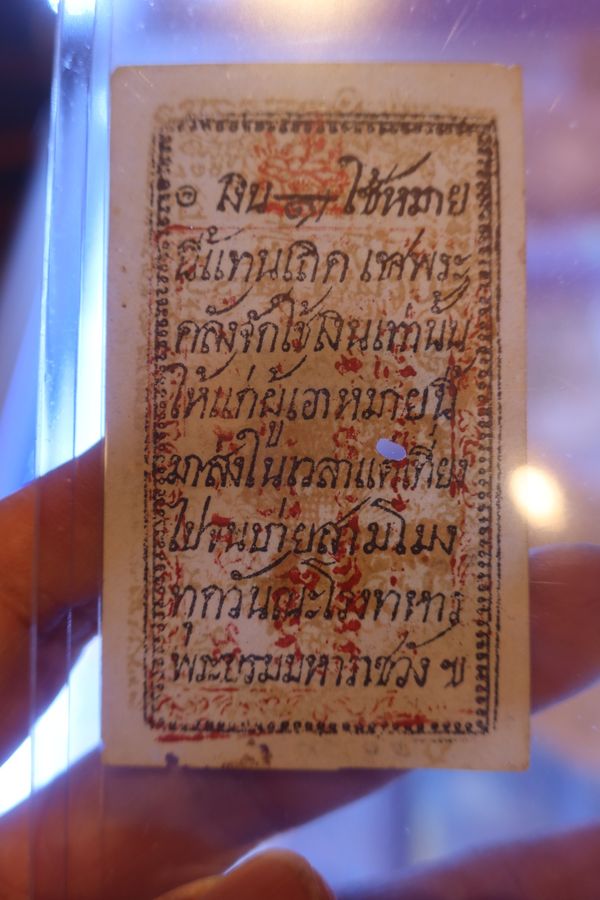 ๏ เงิน ๚ ใช้หมาย
นี้แทนเถิด เฃพระ
คลังจักใช้เงินเท่านั้น
ให้แก่ผู้เอาหมายนี้
มาส่งในเวลาแต่เที่ยง
ไปจนบ่ายสามโมง
ทุกวันณะโรงทหาร
พระบรมมหาราชวัง ฯ